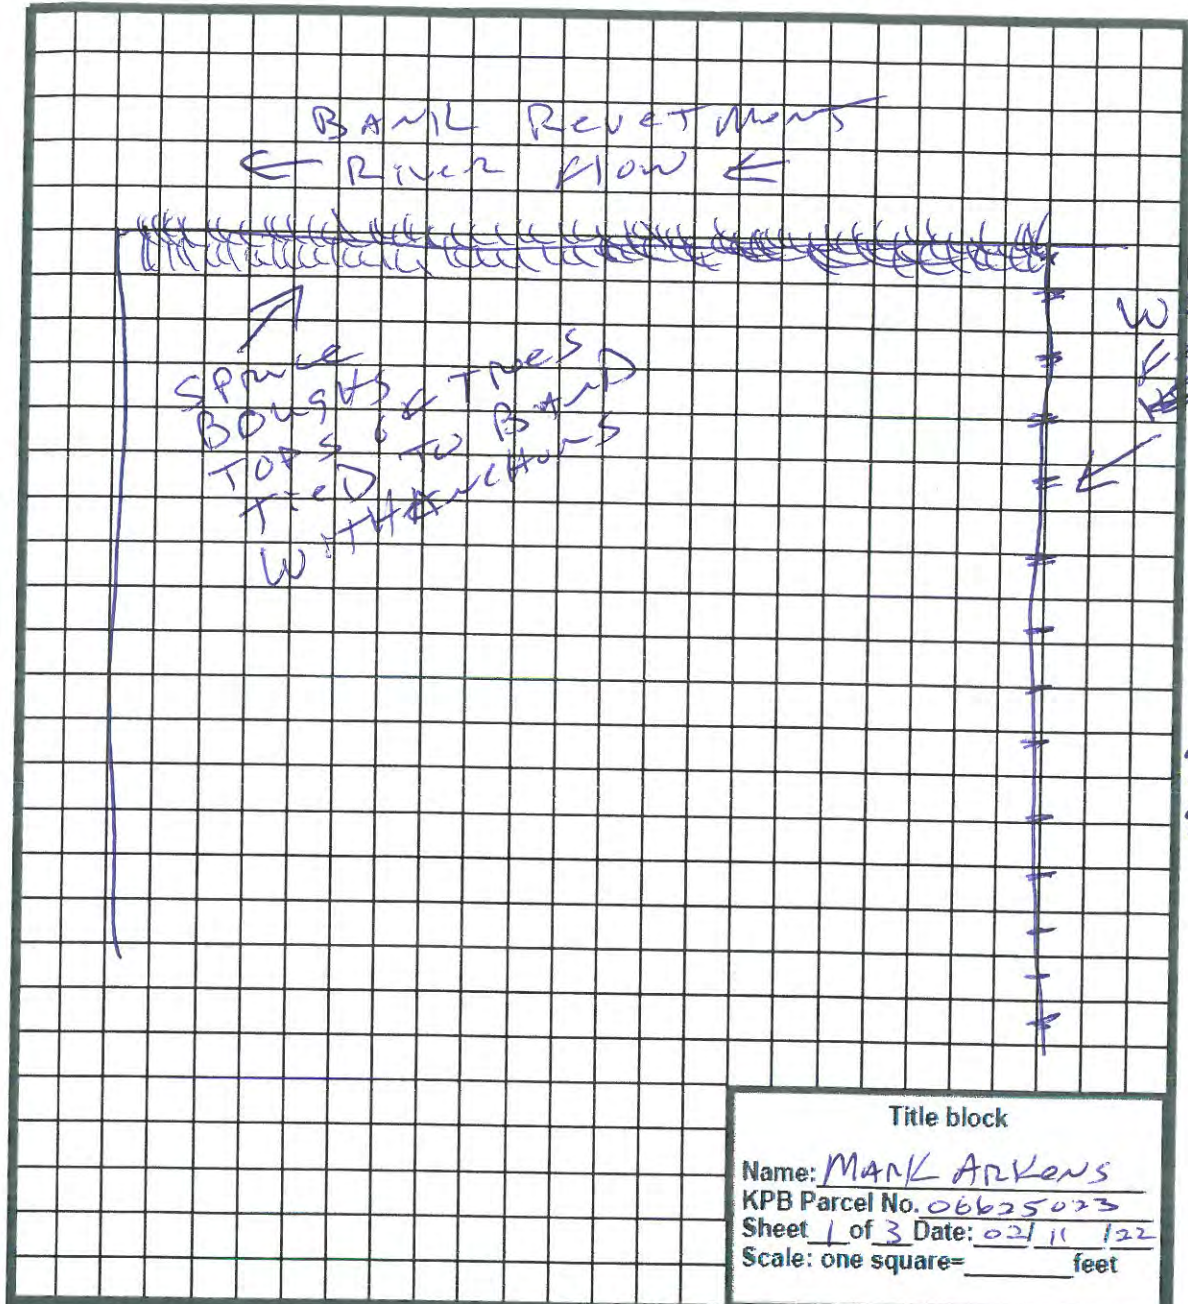 BANK Revetment
← River Flow ←
Spruce
Boughs & Trees
Tops
Tied To BanD
WITH ANCHors
W
Title block
Name: MARK ARKens
KPB Parcel No. 06625023
Sheet 1 of 3 Date: 02/ 11 /22
Scale: one square=______feet